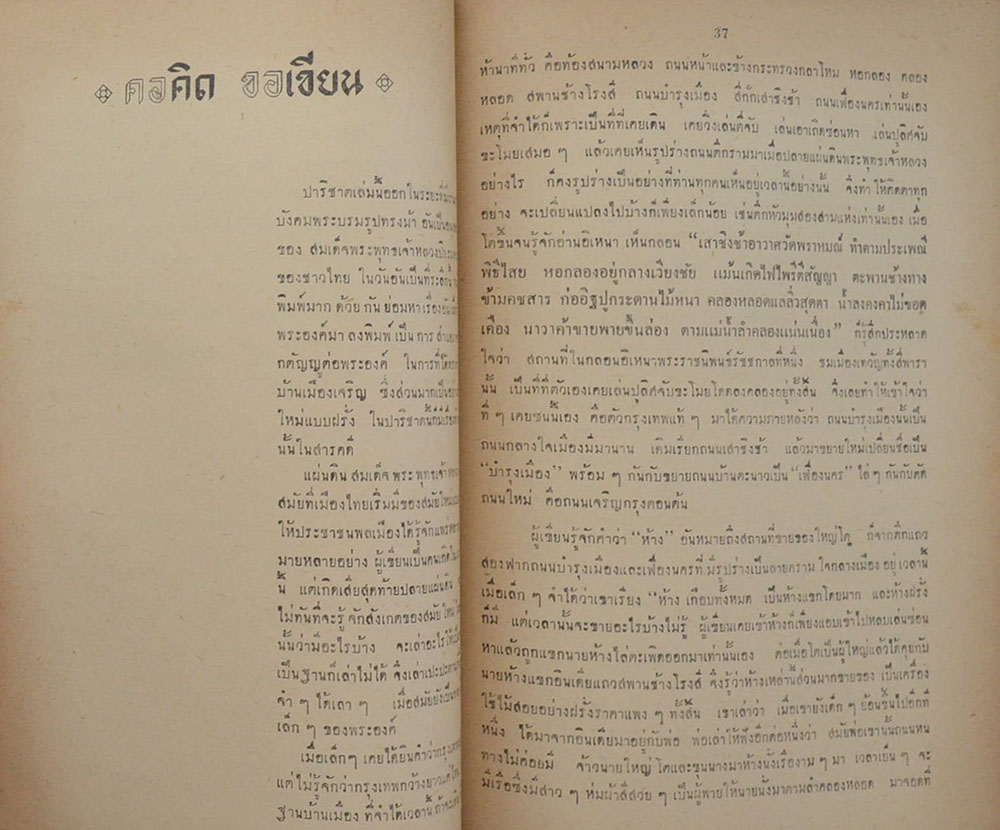 คอคิด ขอเขียน
ปาริชาตเล่มนี้ออกในระยะที่มีงาน
บังคมพระบรมรูปทรงม้า อันเป็น
ของ สมเด็จพระพุทธเจ้าหลวง
ของชาวไทย ในวันอันเป็นที่ระลึก
พิมพ์มาก ด้วย กัน ย่อมหาเรื่อง
พระองค์มา ลงพิมพ์ เป็น การ
กตัญญูต่อพระองค์ ในการที่ได้
บ้านเมืองเจริญ ซึ่งส่วนมากเป็น
ใหม่แบบฝรั่ง ในปาริชาตนี้ก็มีเรื่อง
นั้นในสารคดี
แผ่นดิน สมเด็จ พระ พุทธเจ้า
สมัยที่เมืองไทยเริ่มมีของสมัยใหม่
ให้ประชาชนพลเมืองได้รู้จักแพร่
มายหลายอย่าง ผู้เขียนเป็นคนเกิด
นี้ แต่เกิดเสียสุดท้ายปลายแผ่นดิน
ไม่ทันที่จะรู้ จักสังเกตของสมัยใหม่
นั้นว่ามีอะไรบ้าง จะเล่าอะไรให้
เป็นฐานก็เล่าไม่ได้ จึงเล่าเปะปะ
จำ ๆ ได้เลา ๆ เมื่อสมัยยังเป็น
เล็ก ๆ ของพระองค์
เมื่อเล็กๆ เคยได้ยินคำว่ากรุงเทพ
แต่ไม่รู้จักว่ากรุงเทพกว้างยาว
ฐานบ้านเมือง ที่จำได้เวลานั้น
37
ห้านาทีทั่ว คือท้องสนามหลวง ถนนหน้าและข้างกระทรวงกลาโหม หอกลอง คลอง
หลอด สพานช้างโรงสี ถนนบำรุงเมือง สี่กั๊กเสาชิงช้า ถนนเฟื่องนครเท่านั้นเอง
เหตุที่จำได้ก็เพราะเป็นที่ที่เคยเดิน เคยวิ่งเล่นตี่จับ เล่นเอาเถิดซ่อนหา เล่นปุลิศจับ
ขะโมยเสมอ ๆ แล้วเคยเห็นรูปร่างถนนตึกรามมาเมื่อปลายแผ่นดินพระพุทธเจ้าหลวง
อย่างไร ก็คงรูปร่างเป็นอย่างที่ท่านทุกคนเห็นอยู่เวลานี้อย่างนั้น จึงทำให้ติดตาทุก
อย่าง จะเปลี่ยนแปลงไปบ้างก็เพียงเล็กน้อย เช่นตึกหัวมุมสองสามแห่งเท่านั้นเอง เมื่อ
โตขึ้นจนรู้จักอ่านอิเหนา เห็นกลอน “เสาชิงช้าอาวาศวัดพราหมณ์ ทำตามประเพณี
พิธีไสย หอกลองอยู่กลางเวียงชัย แม้นเกิดไฟไพรีตีสัญญา ตะพานช้างทาง
ข้ามคชสาร ก่ออิฐปูกระดานไม้หนา คลองหลอดแลลิ่วสุดตา น้ำลงคงคาไม่ขอด
เคือง นาวาค้าขายพายขึ้นล่อง ตามแม่น้ำลำคลองแน่นเนื่อง” ก็รู้สึกประหลาด
ใจว่า สถานที่ในกลอนอิเหนาพระราชนิพนธ์รัชชกาลที่หนึ่ง ชมเมืองเทวัญทั้งสี่พารา
นั้น เป็นที่ที่ตัวเองเคยเล่นปุลิศจับขะโมยโดดลงคลองอยู่ทั้งสิ้น จึงเลยทำให้เข้าใจว่า
ที่ ๆ เคยซนนี้เอง คือตัวกรุงเทพแท้ ๆ มาได้ความภายหลังว่า ถนนบำรุงเมืองนั้นเป็น
ถนนกลางใจเมืองมีมานาน เดิมเรียกถนนเสาชิงช้า แล้วมาขยายใหม่เปลี่ยนชื่อเป็น
“บำรุงเมือง” พร้อม ๆ กันกับขยายถนนบ้านตะนาวเป็น “เฟื่องนคร” ไล่ ๆ กันกับตัด
ถนนใหม่ คือถนนเจริญกรุงตอนต้น
ผู้เขียนรู้จักคำว่า “ห้าง” อันหมายถึงสถานที่ขายของใหญ่โต ก็จากตึกแถว
สองฟากถนนบำรุงเมืองและเฟื่องนครที่ มีรูปร่างเป็นลายคราม ใจกลางเมือง อยู่ เวลานี้
เมื่อเล็ก ๆ จำได้ว่าเขาเรียก “ห้าง เกือบทั้งหมด เป็นห้างแขกโดยมาก และห้างฝรั่ง
ก็มี แต่เวลานั้นจะขายอะไรบ้างไม่รู้ ผู้เขียนเคยเข้าห้างก็เพียงแอบเข้าไปหลบเล่นซ่อน
หาแล้วถูกแขกนายห้างไล่ตะเพิดออกมาเท่านั้นเอง ต่อเมื่อโตเป็นผู้ใหญ่แล้วได้คุยกับ
นายห้างแขกอินเดียแถวสพานช้างโรงสี จึงรู้ว่าห้างเหล่านี้ส่วนมากขายของ เป็นเครื่อง
ใช้ไม้สอยอย่างฝรั่งราคาแพง ๆ ทั้งสิ้น เขาเล่าว่า เมื่อเขายังเด็ก ๆ ย้อนขึ้นไปอีกที
หนึ่ง ได้มาจากอินเดียมาอยู่กับพ่อ พ่อเล่าให้ฟังอีกต่อหนึ่งว่า สมัยพ่อเขานั้นถนนหน
ทางไม่ค่อยมี จ้าวนายใหญ่ โตและขุนนางมาห้างนั่งเรืองาม ๆ มา เวลาเย็น ๆ จะ
มีเรือซึ่งมีสาว ๆ ห่มผ้าสีสวย ๆ เป็นผู้พายให้นายนั่งมาตามลำคลองหลอด มาจอดที่